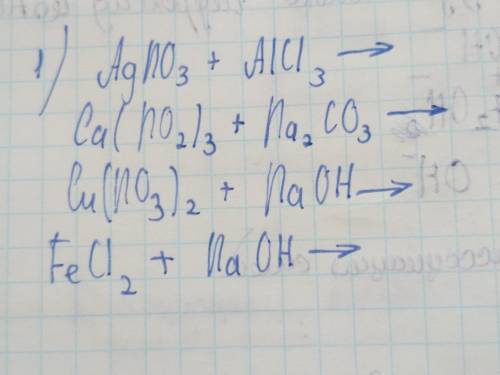 1) AgNO₃ + AlCl₃ →
Ca(NO₂)₃ + Na₂CO₃ →
Cu(NO₃)₂ + NaOH →
FeCl₂ + NaOH →